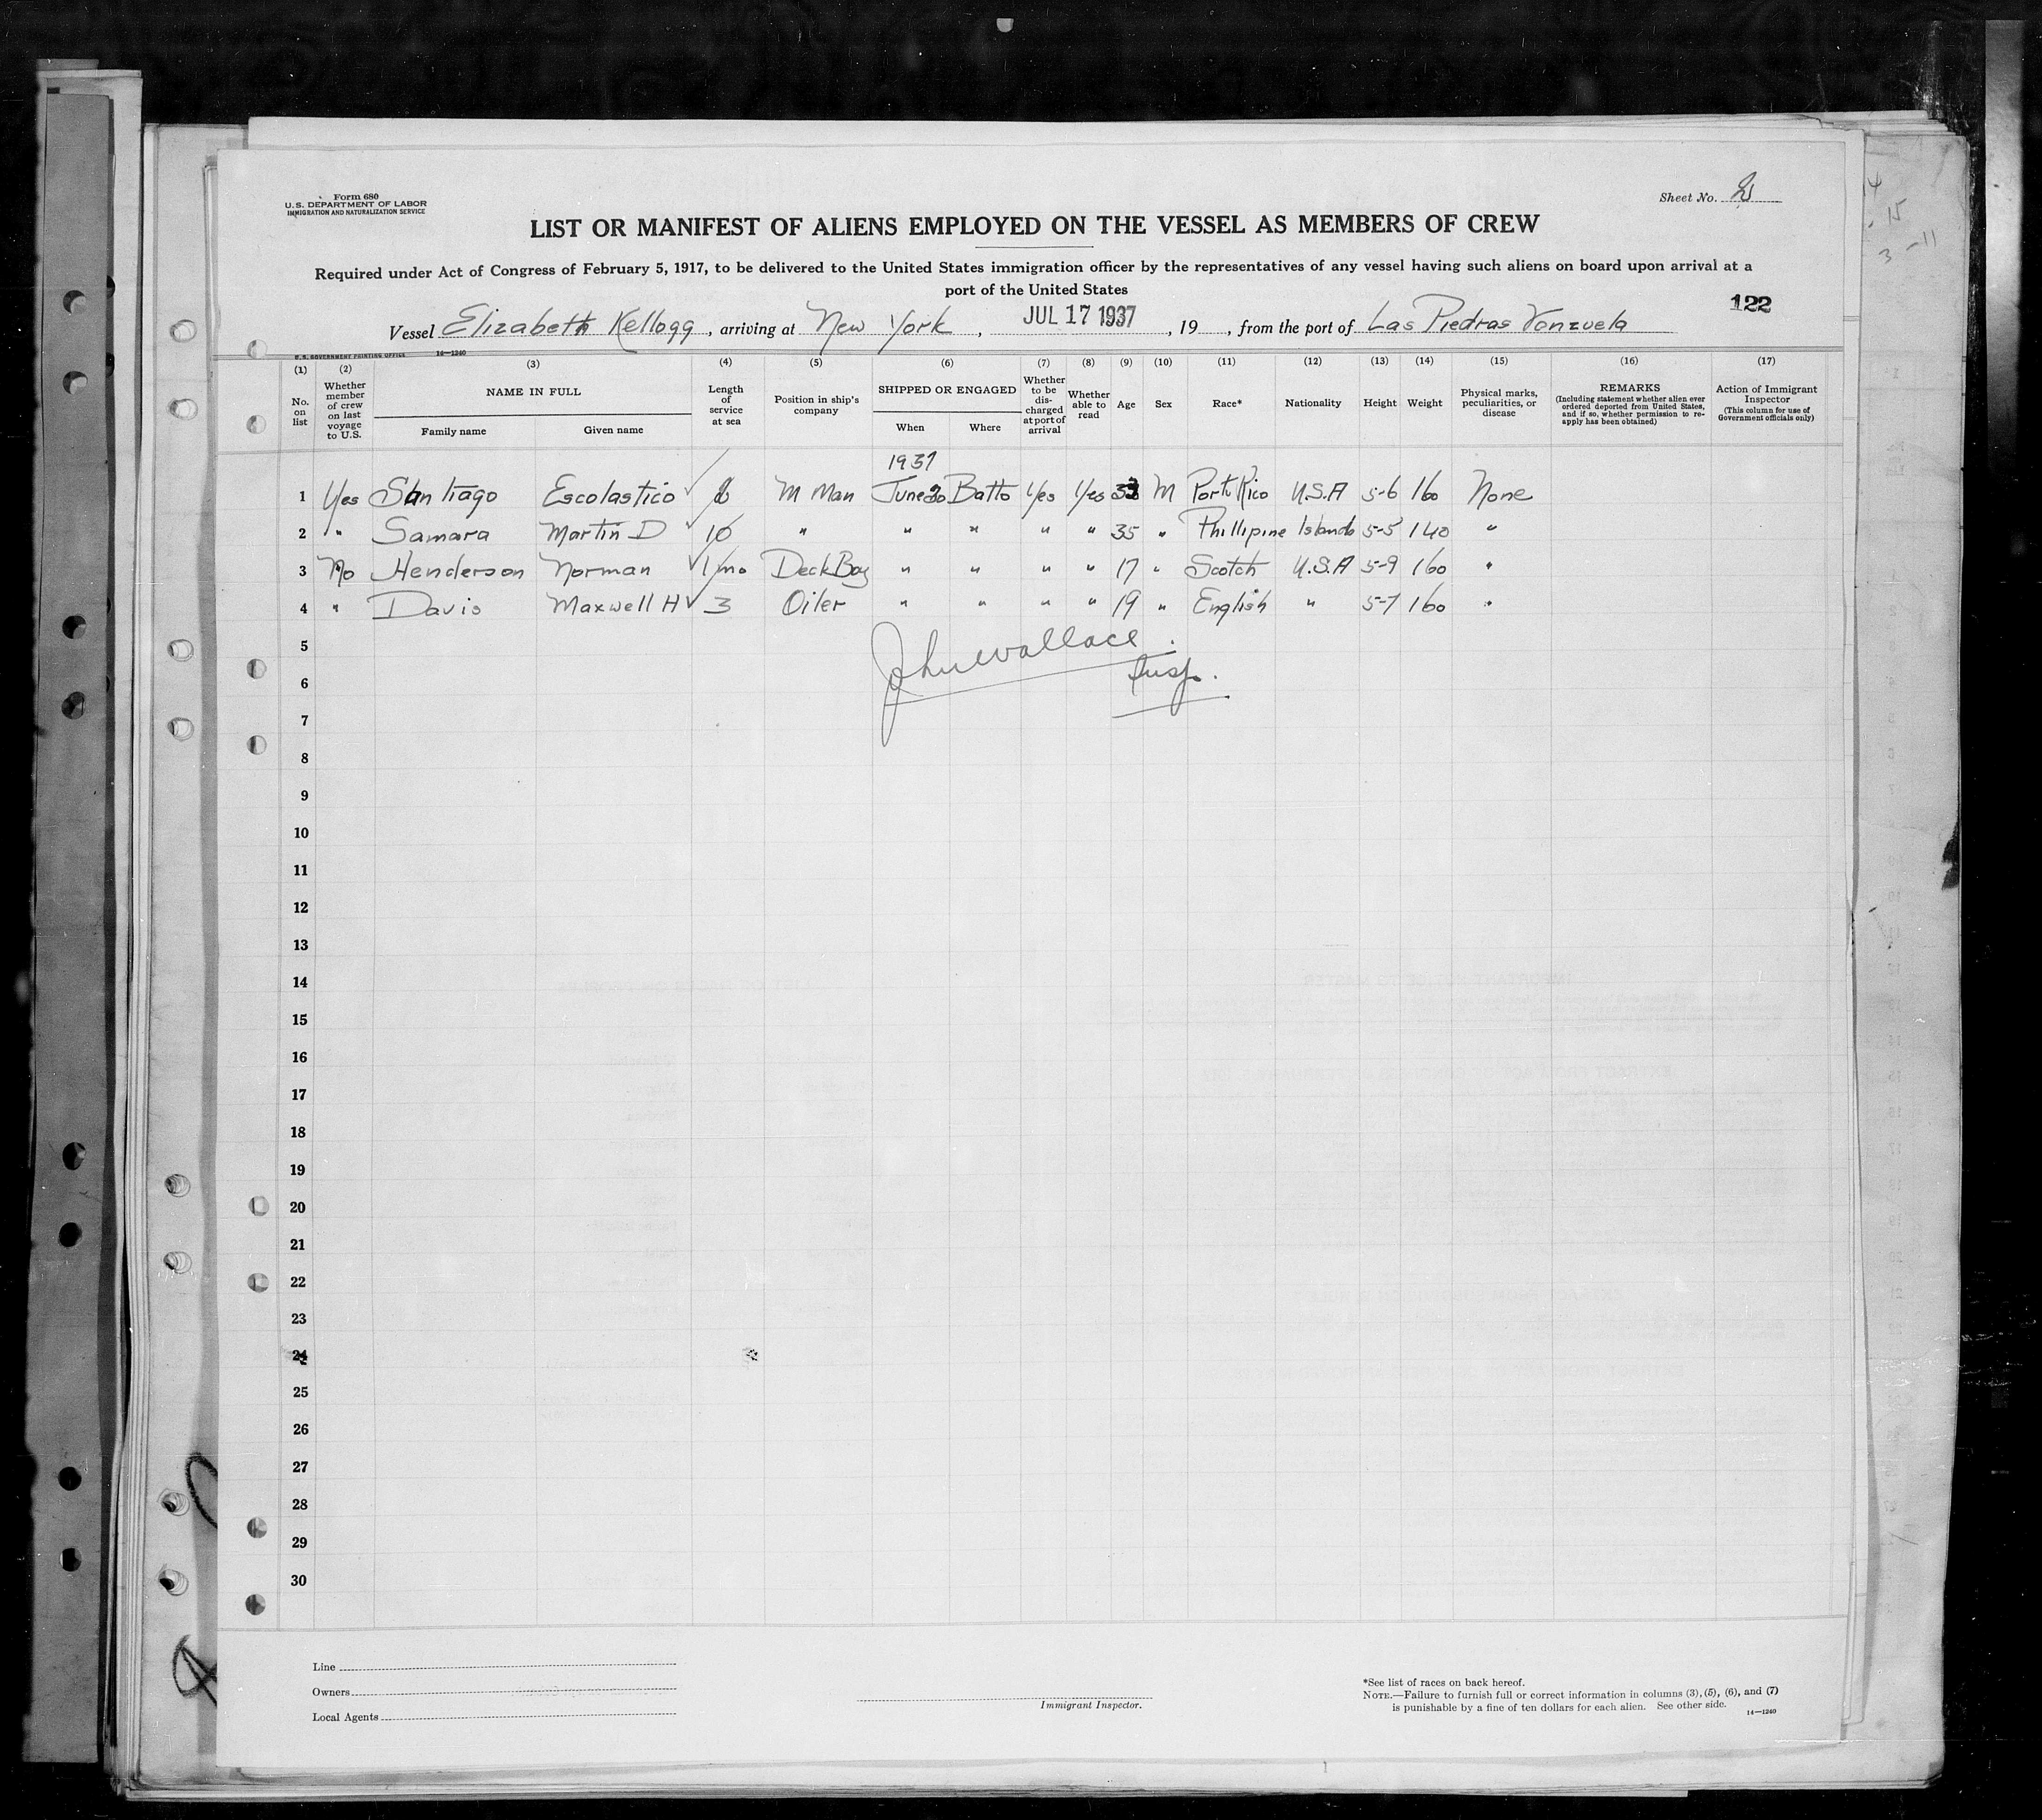 Form 680
U.S. DEPARTMENT OF LABOR
IMMIGRATION AND NATURALIZATION SERVICE
Sheet No.
LIST OR MANIFEST OF ALIENS EMPLOYED ON THE VESSEL AS MEMBERS OF CREW
Required under Act of Congress of February 5, 1917, to be delivered to the United States immigration officer by the representatives of any vessel having such aliens on board upon arrival at a
port of the United States
122
Vessel Elizabeth Kellogg, arriving at New York, JUL 17 1937, 19, from the port of Las Piedras Vonzuela
U.S. GOVERNMENT PRINTING OFFICE 14—1240
(1) No. on list
(2) Whether member of crew on last voyage to U.S.
(3) NAME IN FULL
Family name Given name
(4) Length of service at sea
(5) Position in ship's company
(6) SHIPPED OR ENGAGED
When Where
(7) Whether to be discharged at port of arrival
(8) Whether able to read
(9) Age
(10) Sex
(11) Race*
(12) Nationality
(13) Height
(14) Weight
(15) Physical marks, peculiarities, or disease
(16) REMARKS
(Including statement whether alien ever ordered deported from United States, and if so, whether permission to reapply has been obtained)
(17) Action of Immigrant Inspector
(This column for use of Government officials only)
1937
1 Yes Santiago Escolastico M Man June 30 Batto Yes Yes M Porto Rico U.S.A 5-6 160 None
2 " Samara Martin D 10 " " " " " 35 " Phillipine Islands 5-5 140 "
3 No Henderson Norman 1 mo Deck Boy " " " " 17 " Scotch U.S.A 5-9 160 "
4 " Davis Maxwell H 3 Oiler " " " " 19 " English " 5-7 160 "
5
John Wallace
Insp.
6
7
8
9
10
11
12
13
14
15
16
17
18
19
20
21
22
23
24
25
26
27
28
29
30
Line
Owners
Local Agents
Immigrant Inspector.
*See list of races on back hereof.
NOTE.—Failure to furnish full or correct information in columns (3), (5), (6), and (7)
is punishable by a fine of ten dollars for each alien. See other side.
14—1240